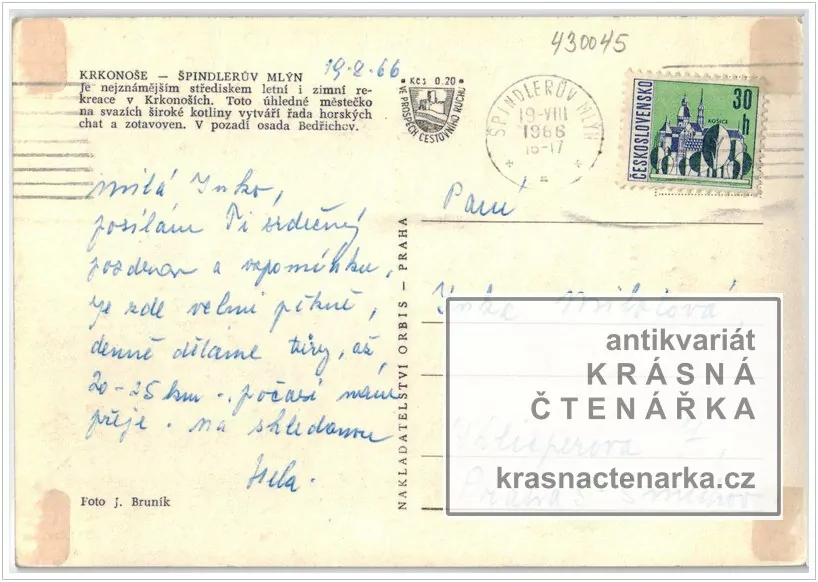 430045
19-8-66
KRKONOŠE — ŠPINDLERŮV MLÝN
je nejznámějším střediskem letní i zimní re-
kreace v Krkonoších. Toto úhledné městečko
na svazích široké kotliny vytváří řada horských
chat a zotavoven. V pozadí osada Bedřichov.
• Kčs 0.20 •
VE PROSPĚCH CESTOVNÍHO RUCHU
ŠPINDLERŮV MLÝN
19-VIII
1966
16-17
ČESKOSLOVENSKO
30 h
KOŠICE
Milá Inko,
posílám Ti srdečný
pozdrav a vzpomínku,
je zde velmi pěkně,
denně děláme túry, až
20-25 km - počasí nám
přeje. na shledanou
Hela.
Foto J. Bruník
NAKLADATELSTVÍ ORBIS — PRAHA
Paní
Inka
Klicperova
Praha 5 - Smíchov
antikvariát
KRÁSNÁ
ČTENÁŘKA
krasnactenarka.cz